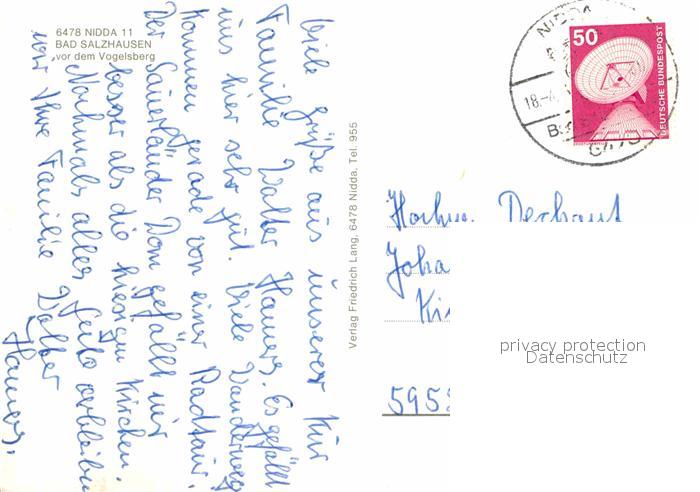 6478 NIDDA 11
BAD SALZHAUSEN
vor dem Vogelsberg
Viele Grüße aus unserer Kur
Familie Walter Hamers. Es gefällt
uns hier sehr gut. Viele Wanderwege
Kommen gerade von einer Radtour.
Der Sauerländer Dom gefällt mir
besser als die hiesigen Kirchen.
Nochmals alles Gute verbleiben
wir Ihre Familie Walter
Hamers.
Verlag Friedrich Lang, 6478 Nidda, Tel. 955
NIDDA
18.-4.
50
DEUTSCHE BUNDESPOST
Hochw. Dechant
Joha
Ki
595
privacy protection
Datenschutz